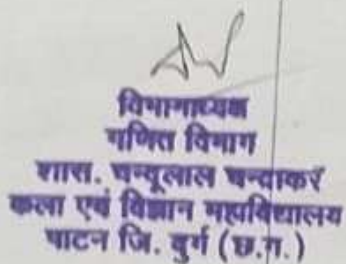 विभागाध्यक्ष
गणित विभाग
शास. चन्दूलाल चन्द्राकर
कला एवं विज्ञान महाविद्यालय
पाटन जि. दुर्ग (छ.ग.)